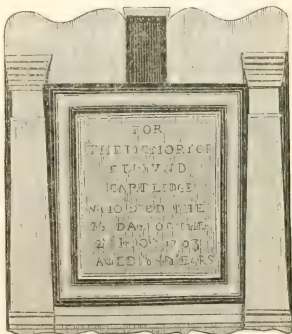 FOR
THE MEMORY OF
EDMVND
CARTLEDGE
WHO DIED THE
DAY OF THE
MO 1703
AGED YEARS